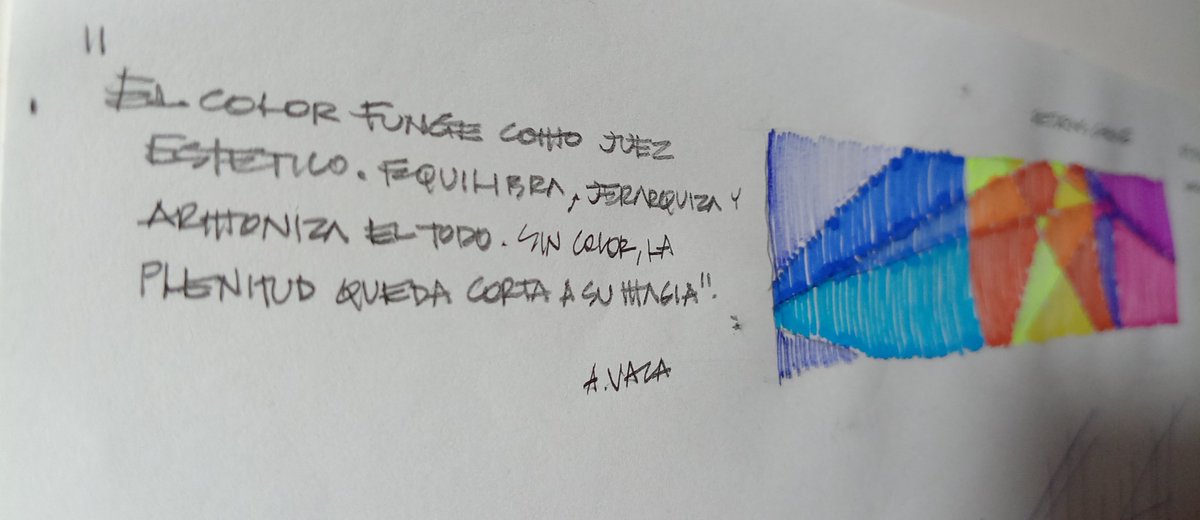 "
EL COLOR FUNGE COMO JUEZ
ESTETICO. EQUILIBRA, JERARQUIZA Y
ARMONIZA EL TODO. SIN COLOR, LA
PLENITUD QUEDA CORTA A SU MAGIA".
A. VAZA